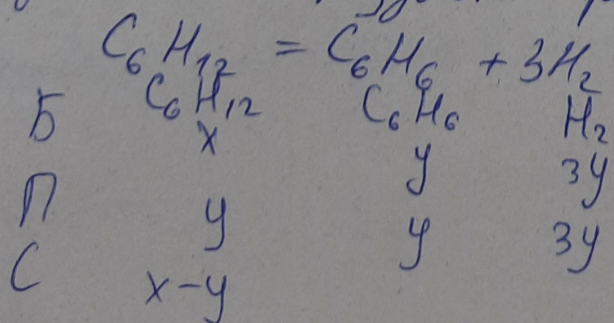 C₆H₁₂ = C₆H₆ + 3H₂
C₆H₁₂ C₆H₆ H₂
Б x
П y y 3y
С x-y y 3y